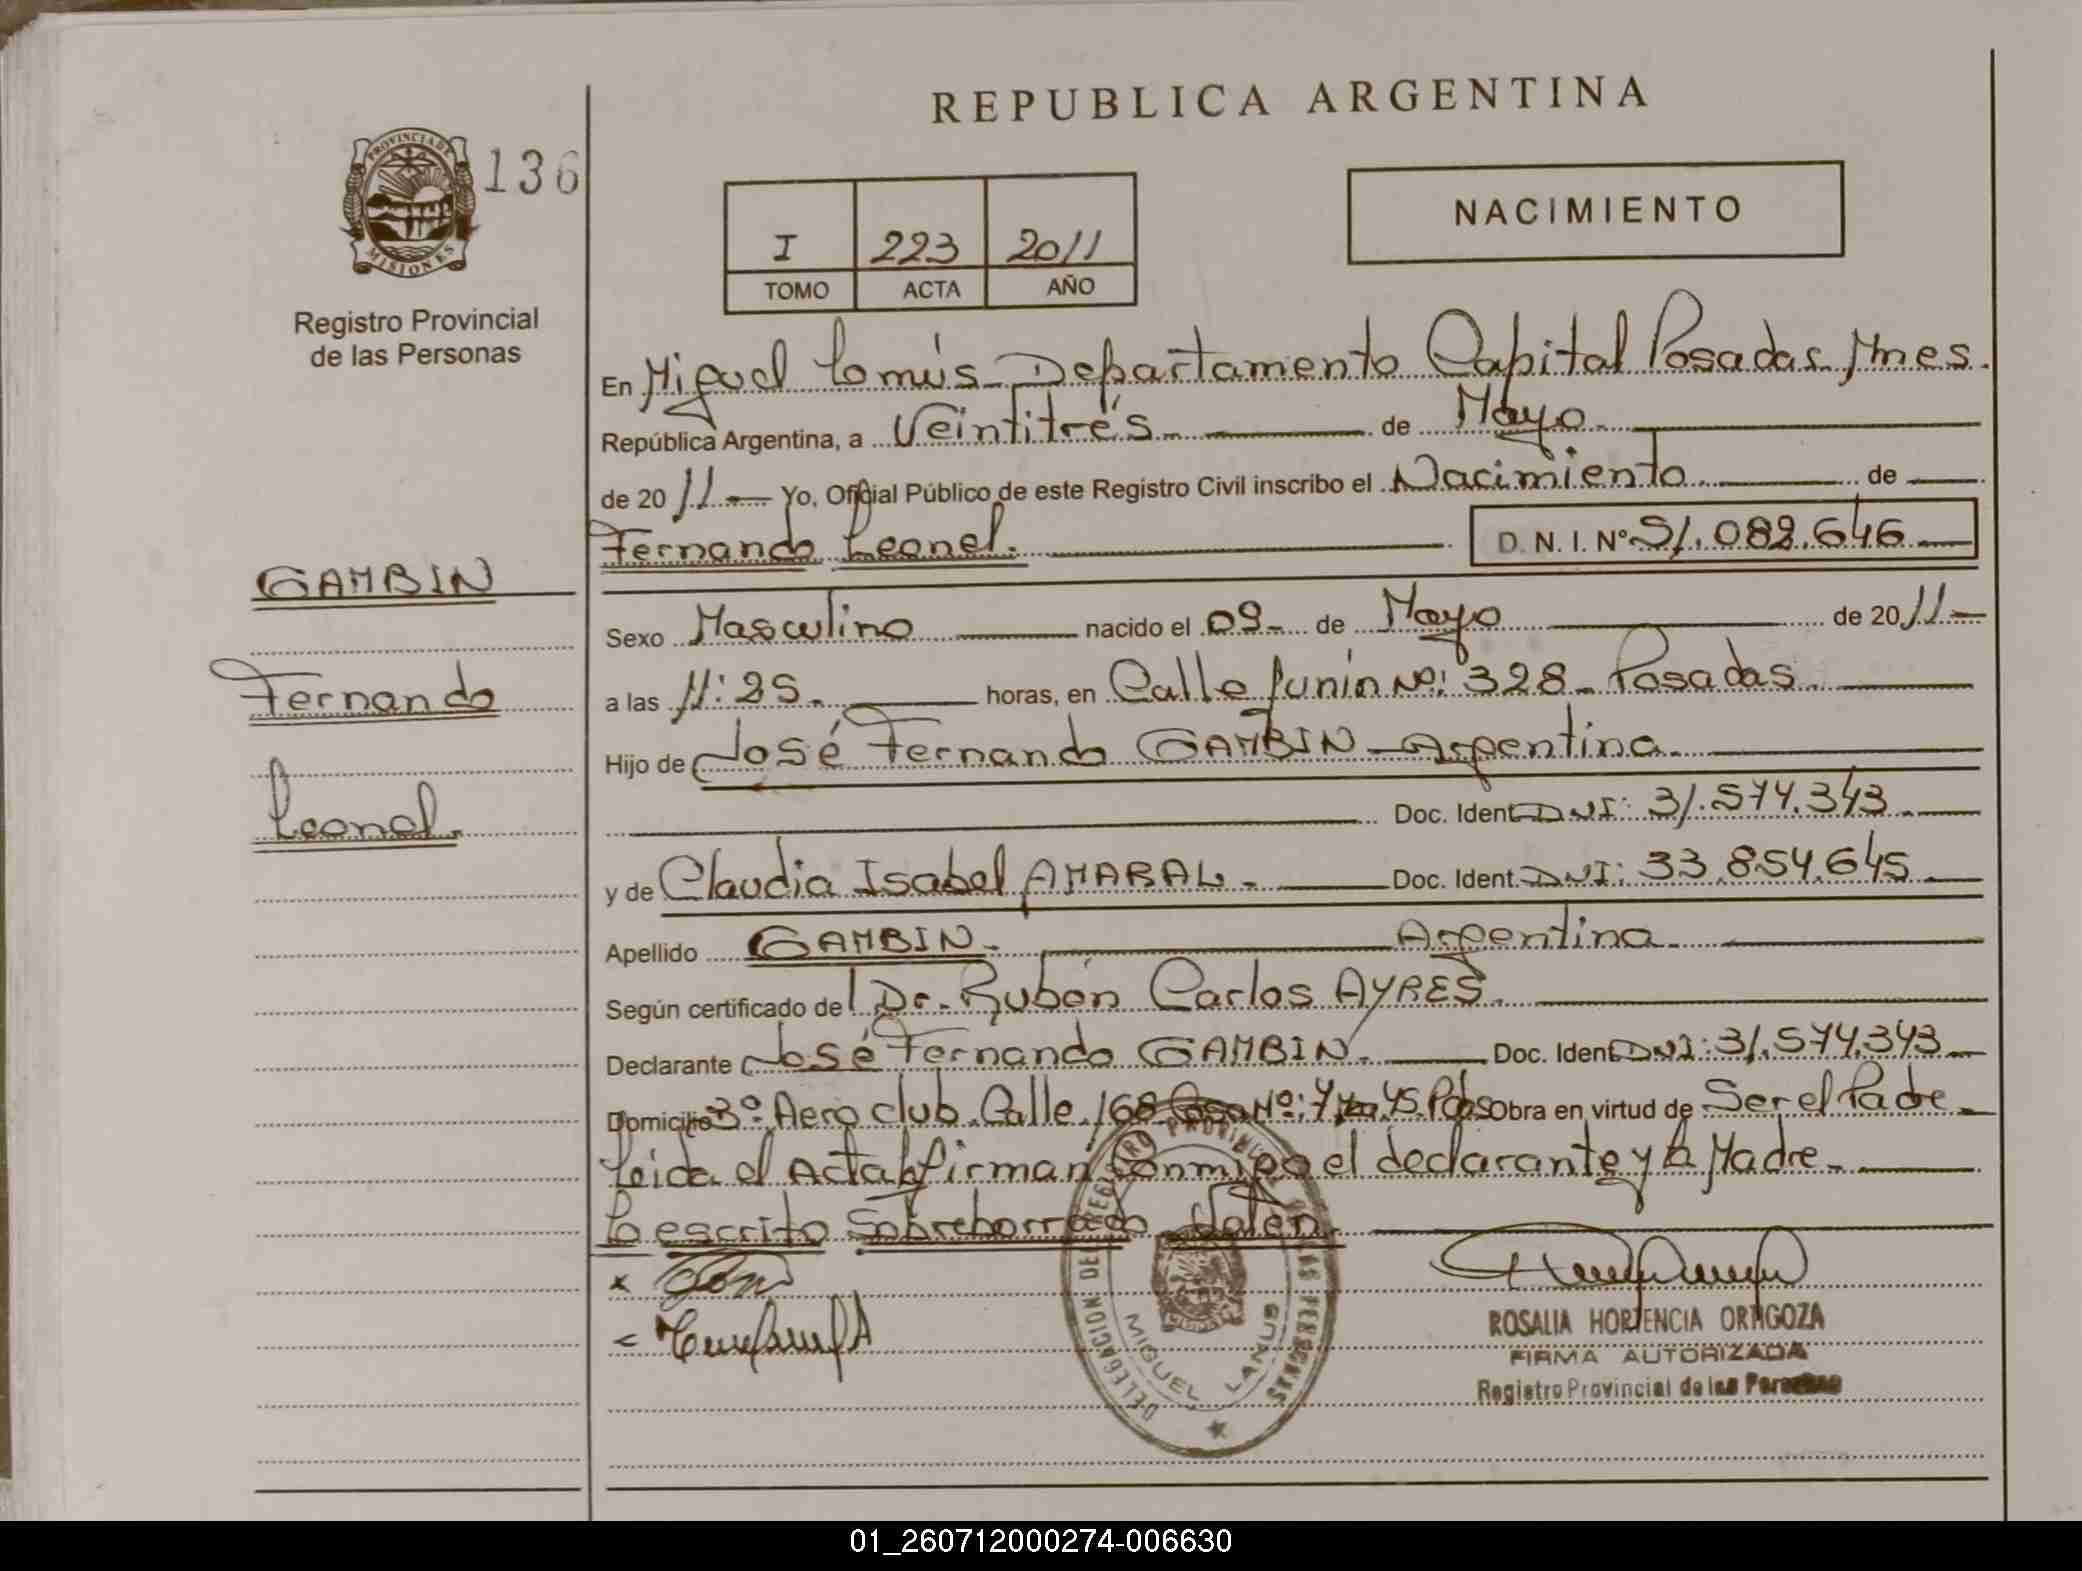 REPUBLICA ARGENTINA
PROVINCIA DE
MISIONES
136
Registro Provincial
de las Personas
I 223 2011
TOMO ACTA AÑO
NACIMIENTO
En Miguel Lanús - Departamento Capital Posadas Mnes.
República Argentina, a Veintitrés de Mayo
de 2011 Yo, Oficial Público de este Registro Civil inscribo el Nacimiento de
Fernando Leonel. D. N. I. N° 51.082.646
GAMBIN
Fernando
Leonel.
Sexo Masculino nacido el 09 de Mayo de 2011
a las 11:25 horas, en Calle Junín Nº: 328 - Posadas
Hijo de José Fernando GAMBIN - Argentina
Doc. Ident. DNI: 31.574.343
y de Claudia Isabel AMARAL. Doc. Ident. DNI: 33.854.645
Apellido GAMBIN. Argentina
Según certificado de Dr. Rubén Carlos AYRES
Declarante José Fernando GAMBIN. Doc. Ident. DNI: 31.574.343
Domicilio Bº: Aero club. Calle 168 Casa Nº: 45. Pdas Obra en virtud de Ser el Padre
Leida el Acta firman Conmigo el declarante y la Madre
Lo escrito Sobreborrado Valen.
DELEGACION DEL REGISTRO PROVINCIAL DE LAS PERSONAS
MIGUEL LANUS
ROSALIA HORTENCIA ORTIGOZA
FIRMA AUTORIZADA
Registro Provincial de las Personas
01_260712000274-006630